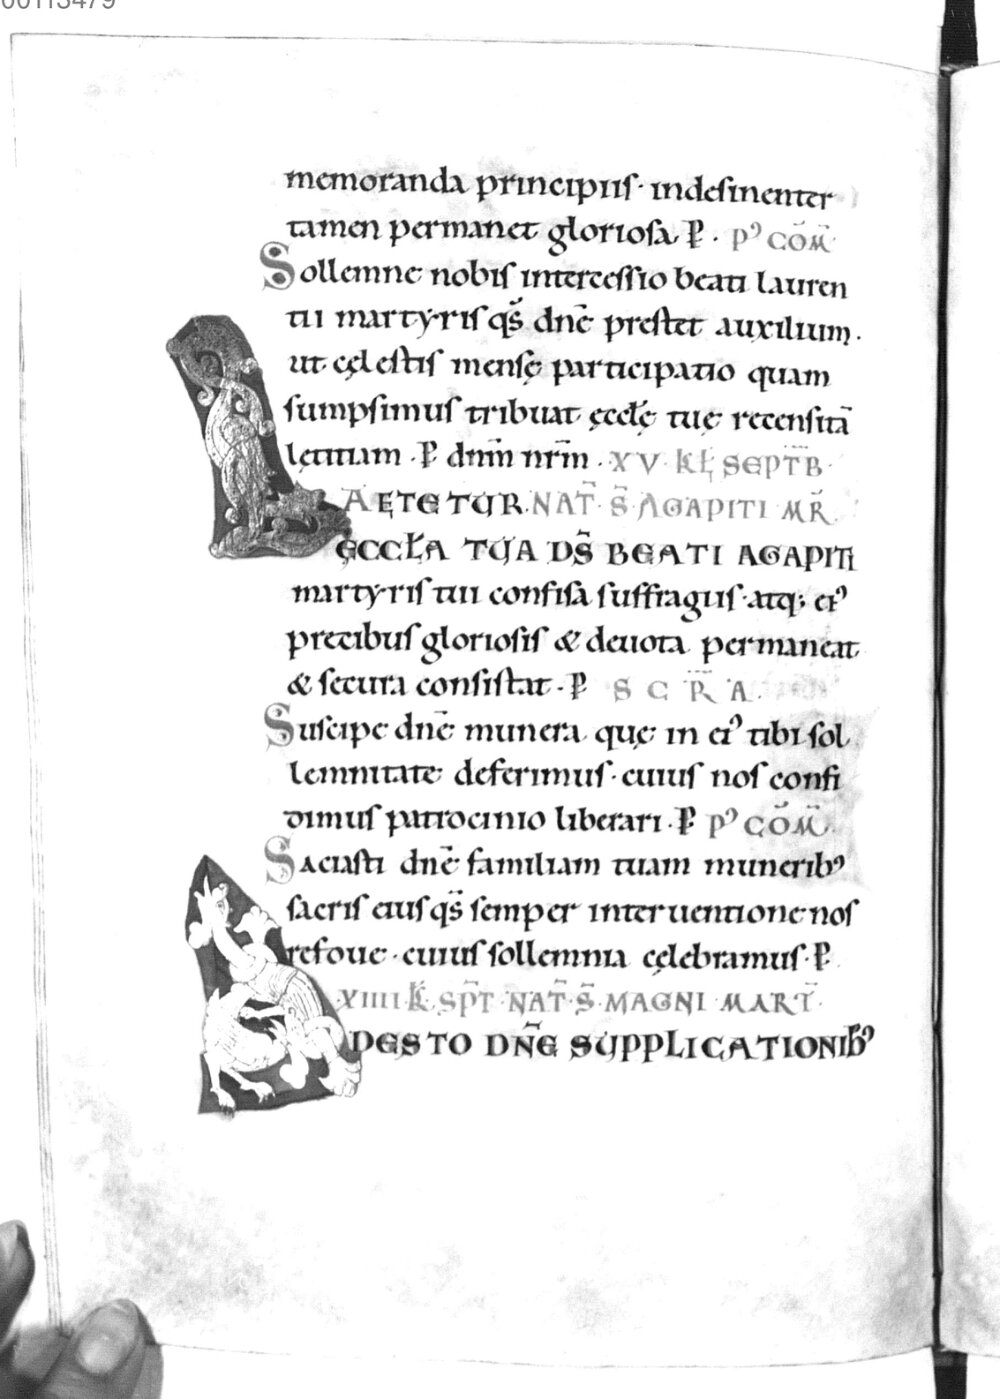 00113479
memoranda principiis· indesinenter
tamen permanet gloriosa. P̄. pꝰ cōm̄
Sollemne nobis intercessio beati lauren
tii martyris qs̄ dnē prestet auxilium.
ut cęlestis mensę participatio quam
sumpsimus tribuat ęccłę tuę recensitā
lętitiam. P̄ dnm̄ nrm̄. XV. KŁ SEPTB̄.
LAETETUR. NAT̄. S̄. AGAPITI MR̄.
ĘCCŁA TUA DS̄ BEATI AGAPITI
martyris tui confisa suffragiis· atq; eiꝰ
precibus gloriosis & deuota permaneat
& secura consistat. P̄ SCR̄A.
Suscipe dnē munera quę in eiꝰ tibi sol
lemnitate deferimus· cuius nos confi
dimus patrocinio liberari. P̄ pꝰ CŌM̄.
Saciasti dnē familiam tuam muneribꝰ
sacris eius qs̄ semper interuentione nos
refoue· cuius sollemnia cęlebramus. P̄
XIIII. KŁ. SPT̄ NAT̄. S̄. MAGNI MART̄.
ADESTO DN̄E SUPPLICATIONIBꝰ